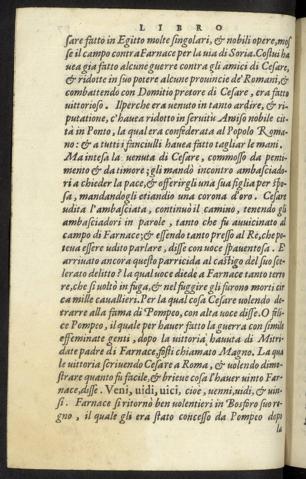 LIBRO
sare fatto in Egitto molte singolari, & nobili opere, mos
se il campo contra Farnace per la via di Soria. Costui ha
uea gia fatto alcune guerre contra gli amici di Cesare,
& ridotte in suo potere alcune prouincie de' Romani, &
combattendo con Domitio pretore di Cesare, era fatto
vittorioso. Il perche era venuto in tanto ardire, & ri-
putatione, c'hauea ridotto in seruitù Amiso nobile cit
tà in Ponto, la qual era confederata al Popolo Roma-
no: & a tutti i fanciulli hauea fatto tagliar le mani.
Ma intesa la venuta di Cesare, commosso da penti-
mento & da timore; gli mandò incontro ambasciador-
i a chieder la pace, & offerirgli una sua figlia per spo-
sa, mandandogli etiandio una corona d'oro. Cesare
udita l'ambasciata, continuò il camino, tenendo gli
ambasciadori in parole, tanto che fu auuicinato al
campo di Farnace; & essendo tanto presso al Re, che po
teua essere udito parlare, disse con uoce spauentosa. E
arriuato ancora questo parricida al castigo del suo sce-
lerato delitto? la qual uoce diede a Farnace tanto terro
re, che si uoltò in fuga, & nel fuggire gli furono morti cir
ca mille cauallieri. Per la qual cosa Cesare uolendo de-
trarre alla fama di Pompeo, con alta uoce disse. O feli-
ce Pompeo, il quale per hauer fatto la guerra con simile
effeminate genti, dopo la uittoria hauuta di Mitri
date padre di Farnace, fosti chiamato Magno. La qua
le uittoria scriuendo Cesare a Roma, & uolendo dimo-
strare quanto fu facile, & brieue cosa l'hauer uinto Far-
nace, disse. Veni, uidi, uici, cioè, uenni, uidi, & uin-
si. Farnace si ritornò ben uolentieri in Bosforo suo re-
gno, il quale gli era stato concesso da Pompeo dopo
la